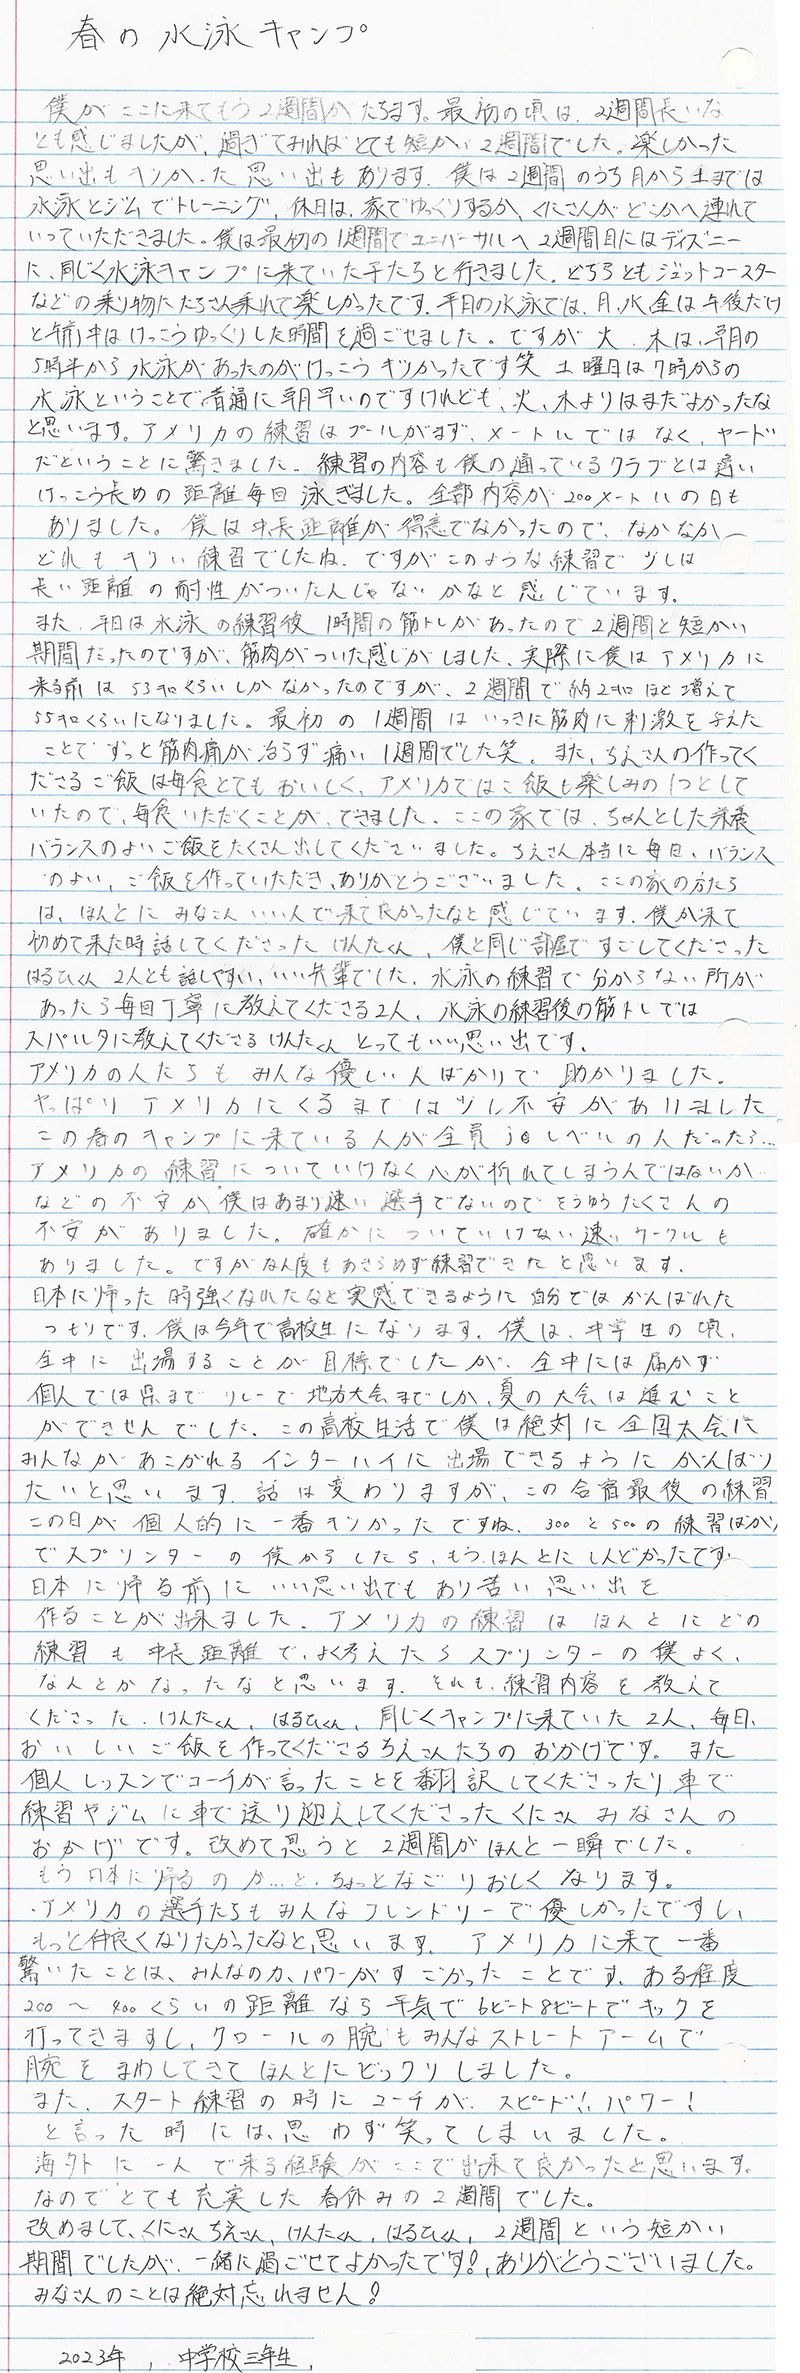 春の水泳キャンプ
僕がここに来てもう2週間がたちます。最初の頃は、2週間長いな
とも感じましたが、過ぎてみればとても短かい2週間でした。楽しかった
思い出もキツかった思い出もあります。僕は2週間のうち月から土までは
水泳とジムでトレーニング、休日は、家でゆっくりするか、くにさんがどこかへ連れて
いっていただきました。僕は最初の1週間でユニバーサルへ2週間目にはディズニー
に、同じく水泳キャンプに来ていた子たちと行きました。どちらともジェットコースター
などの乗り物にたくさん乗れて楽しかったです。平日の水泳では、月、水、金は午後だけ
と午前中はけっこうゆっくりした時間を過ごせました。ですが火、木は、早朝の
5時半から水泳があったのがけっこうキツかったです笑 土曜日は7時からの
水泳ということで普通に早いのですけれども、火、木よりはまだよかったな
と思います。アメリカの練習はプールがまず、メートルではなく、ヤード
だということに驚きました。練習の内容も僕の通っているクラブとは違い
けっこう長めの距離毎回泳ぎました。全部内容が200メートルの日も
ありました。僕は中長距離が得意でなかったので、なかなか
どれもキツい練習でしたね。ですがこのような練習で少しは
長い距離の耐性がついたんじゃないかなと感じています。
また、平日は水泳の練習後1時間の筋トレがあったので2週間と短かい
期間だったのですが、筋肉がついた感じがしました。実際に僕はアメリカに
来る前は53キロくらいしかなかったのですが、2週間で約2キロほど増えて
55キロくらいになりました。最初の1週間はいっきに筋肉に刺激を与えた
ことでずっと筋肉痛が治らず痛い1週間でした笑。また、ちえさんの作ってく
ださるご飯は毎食とてもおいしく、アメリカではご飯も楽しみの1つとして
いたので、毎食いただくことが、できました。ここの家では、ちゃんとした栄養
バランスのよいご飯をたくさん出してくださいました。ちえさん本当に毎日、バランス
のよい、ご飯を作っていただき、ありがとうございました。ここの家の方たち
は、ほんとにみなさんいい人で来て良かったなと感じています。僕が来て
初めて来た時話してくださったけんたくん、僕と同じ部屋ですごしてくださった
はるひくん2人とも話しやすい、いい先輩でした。水泳の練習で分からない所が
あったら毎回丁寧に教えてくださる2人、水泳の練習後の筋トレでは
スパルタに教えてくださるけんたくんとってもいい思い出です。
アメリカの人たちもみんな優しい人ばかりで助かりました。
やっぱりアメリカにくるまでは少し不安がありました
この春のキャンプに来ている人が全員joレベルの人だったら…
アメリカの練習についていけなく心が折れてしまうんではないか…
などの不安が僕はあまり速い選手でないのでそうゆうたくさんの
不安がありました。確かについていけない速いサークルも
ありました。ですがなん度もあきらめず練習できたと思います。
日本に帰った時強くなれたなと実感できるように自分ではがんばれた
つもりです。僕は今年で高校生になります。僕は、中学生の頃、
全中に出場することが目標でしたが、全中には届かず
個人では県までリレーで地方大会までしか、夏の大会は進むこと
ができせんでした。この高校生活で僕は絶対に全国大会に
みんながあこがれるインターハイに出場できるようにがんばり
たいと思います。話は変わりますが、この合宿最後の練習
この日が個人的に一番キツかったですね。300と500の練習ばかり
でスプリンターの僕からしたら、もう、ほんとにしんどかったです。
日本に帰る前にいい思い出でもあり苦い思い出を
作ることが出来ました。アメリカの練習はほんとにどの
練習も中長距離で、よく考えたらスプリンターの僕よく、
なんとかなったなと思います。それも、練習内容を教えて
くださった、けんたくん、はるひくん、同じくキャンプに来ていた2人、毎日、
おいしいご飯を作ってくださるちえさんたちのおかげです。また
個人レッスンでコーチが言ったことを翻訳してくださったり車で
練習やジムに車で送り迎えしてくださったくにさんみなさんの
おかげです。改めて思うと2週間がほんと一瞬でした。
もう日本に帰るのか…と、ちょっとなごりおしくなります。
アメリカの選手たちもみんなフレンドリーで優しかったですし、
もっと仲良くなりたかったなと思います。アメリカに来て一番
驚いたことは、みんなの力、パワーがすごかったことです。ある程度
200〜400くらいの距離なら平気で6ビート8ビートでキックを
打ってきますし、クロールの腕もみんなストレートアームで
腕をまわしてきてほんとにビックリしました。
また、スタート練習の時にコーチが、スピード!、パワー!
と言った時には、思わず笑ってしまいました。
海外に一人で来る経験がここで出来て良かったと思います。
なのでとても充実した春休みの2週間でした。
改めまして、くにさんちえさん、けんたくん、はるひくん、2週間という短かい
期間でしたが、一緒に過ごせてよかったです!、ありがとうございました。
みなさんのことは絶対忘れません!
2023年、中学校三年生、